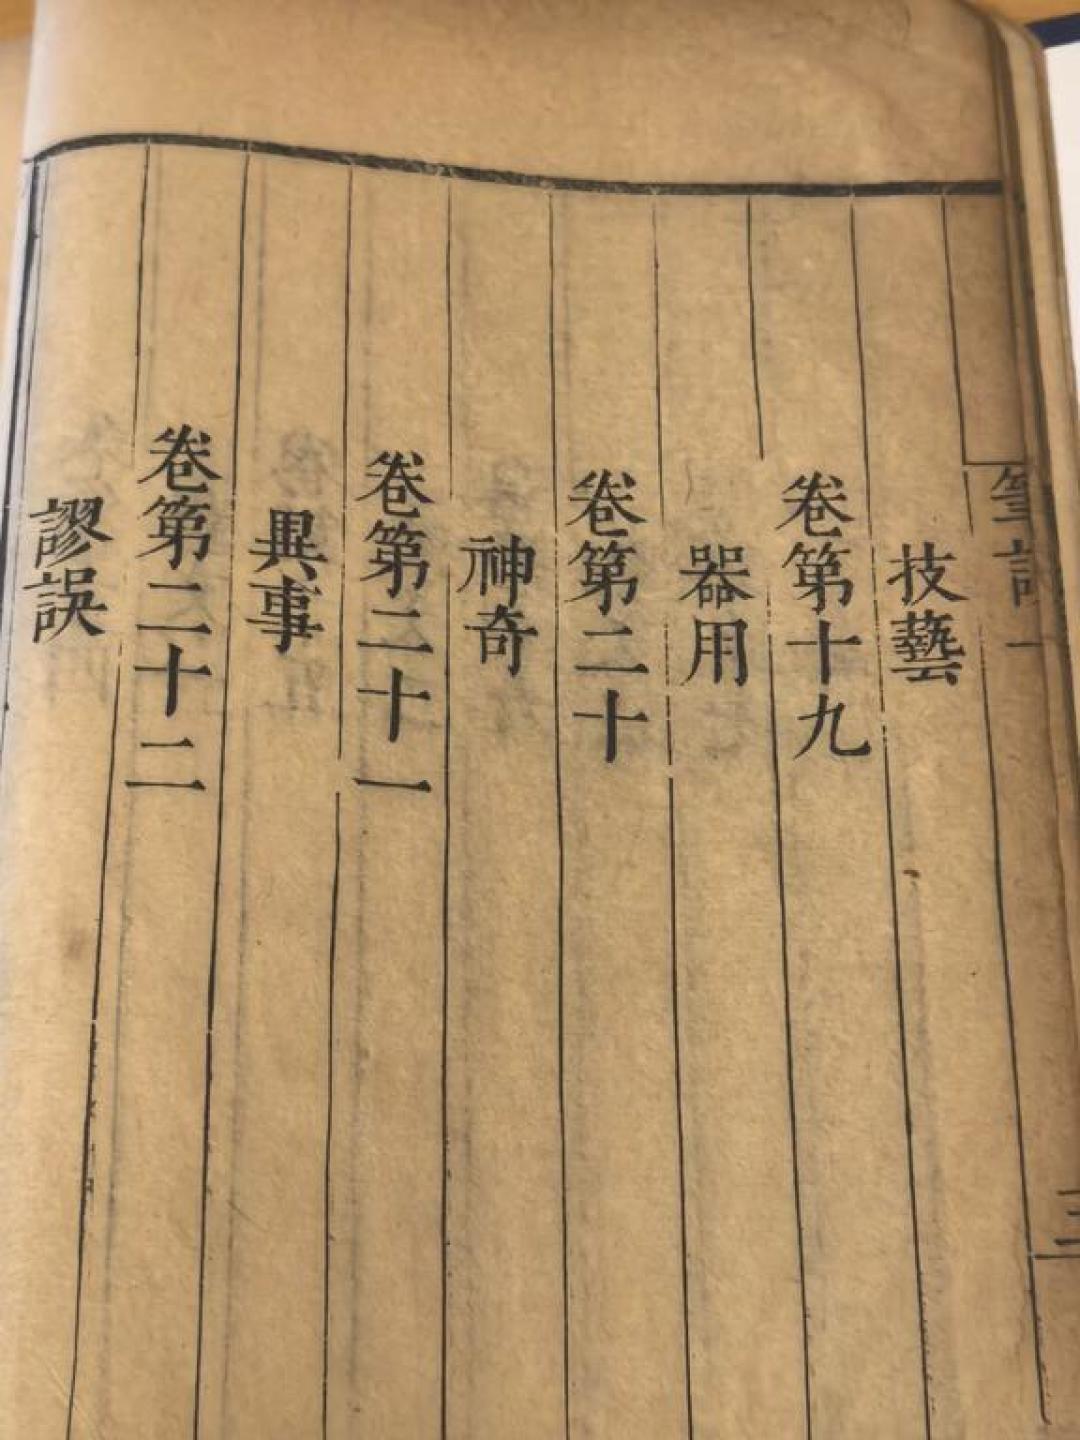 筆記一
三
技藝
卷第十九
器用
卷第二十
神奇
卷第二十一
異事
卷第二十二
謬誤